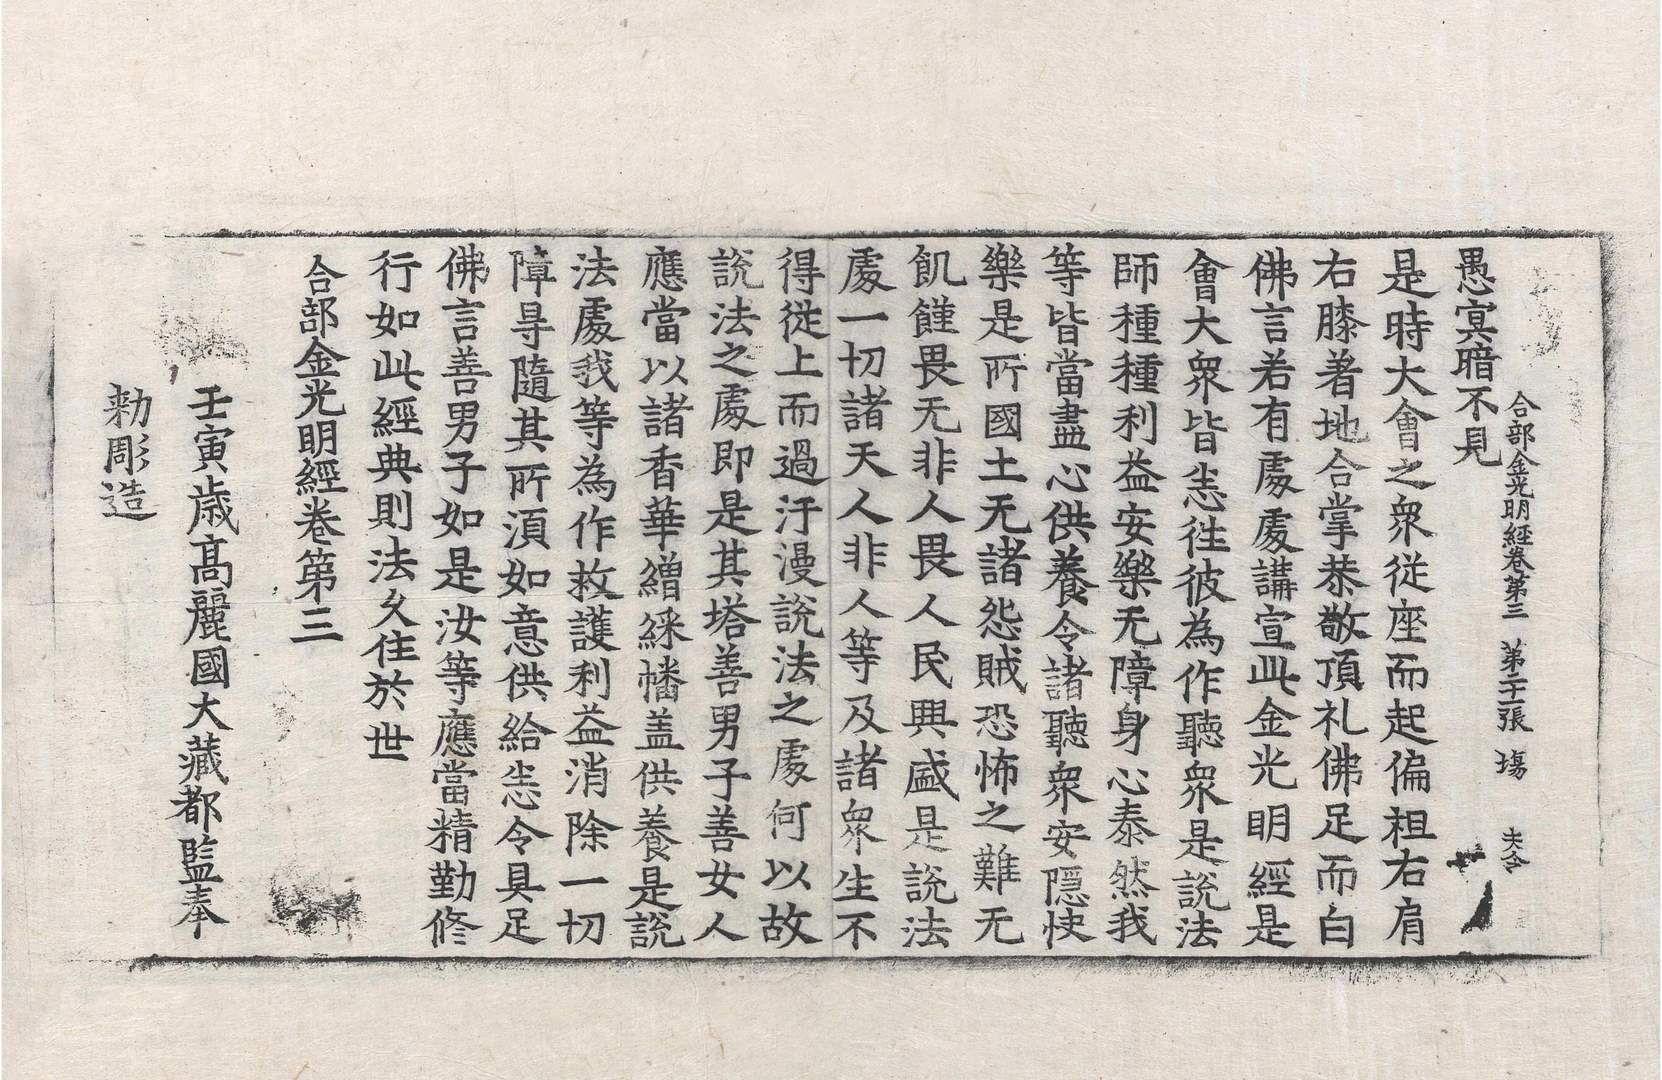 合部金光明經卷第三 第二十一張 場 夫令
愚冥暗不見
是時大會之眾從座而起偏袒右肩
右膝著地合掌恭敬頂礼佛足而白
佛言若有處處講宣此金光明經是
會大眾皆悉徃彼為作聽眾是說法
師種種利益安樂无障身心泰然我
等皆當盡心供養令諸聽眾安隱快
樂是所國土无諸怨賊恐怖之難无
飢饉畏无非人畏人民興盛是說法
處一切諸天人非人等及諸眾生不
得從上而過汙漫說法之處何以故
說法之處即是其塔善男子善女人
應當以諸香華繒綵幡盖供養是說
法處我等為作救護利益消除一切
障㝵隨其所須如意供給悉令具足
佛言善男子如是汝等應當精勤修
行如此經典則法久住於世
合部金光明經卷第三
壬寅歲高麗國大藏都監奉
勑彫造